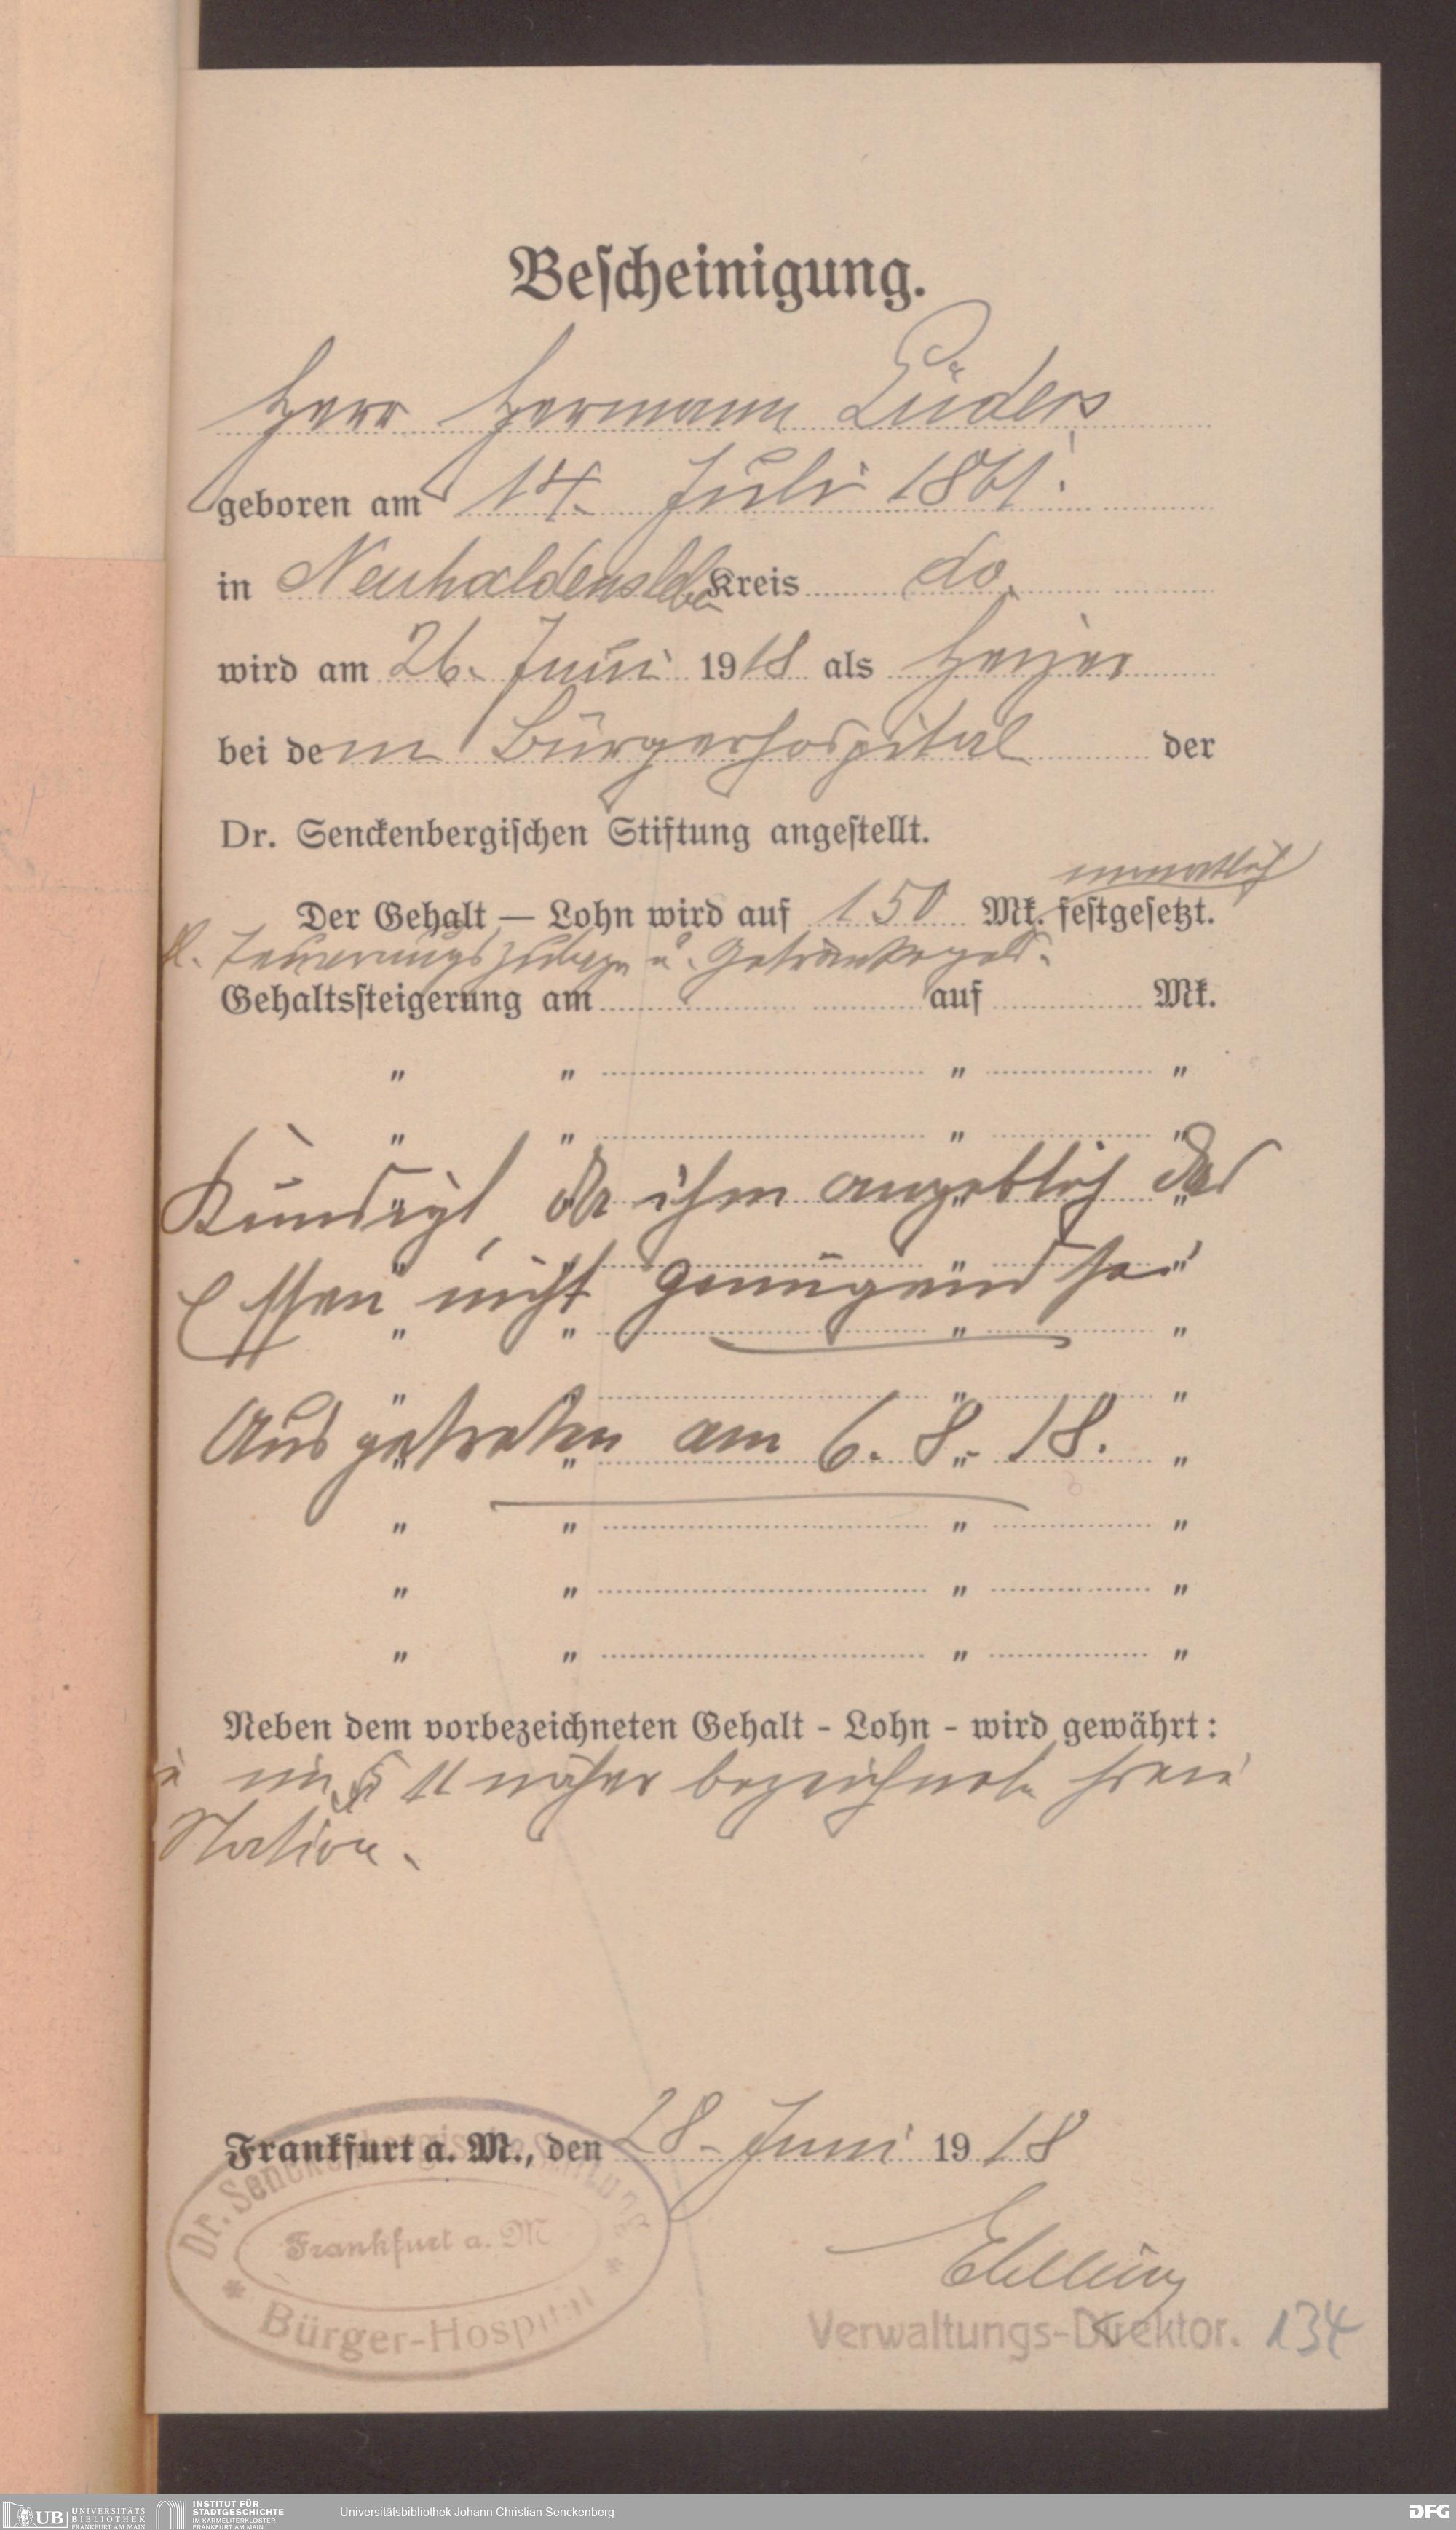 Bescheinigung.
Herr Hermann Lüders
geboren am 14. Juli 1861.
in Neuhaldensleben Kreis do.
wird am 26. Juni 1918 als Heizer
bei dem Bürgerhospital der
Dr. Senckenbergischen Stiftung angestellt.
monatlich
Der Gehalt — Lohn wird auf 150 Mk. festgesetzt.
Teuerungszulage u. Getränkegeld.
Gehaltssteigerung am auf Mk.
" " " "
" " " "
Kündigt, da ihm angeblich das
" "
Essen nicht genügend sei
" " " "
" " " "
" " " "
Ausgetreten am 6. 8. 18.
" " " "
" " " "
" " " "
" " " "
Neben dem vorbezeichneten Gehalt - Lohn - wird gewährt:
im § 11 näher bezeichnete freie
Station.
Frankfurt a. M., den 28. Juni 1918
Dr. Senckenbergische Stiftung
Frankfurt a. M
* Bürger-Hospital *
Ebeling
Verwaltungs-Direktor. 134
UB UNIVERSITÄTS
BIBLIOTHEK
FRANKFURT AM MAIN
INSTITUT FÜR
STADTGESCHICHTE
IM KARMELITERKLOSTER
FRANKFURT AM MAIN
Universitätsbibliothek Johann Christian Senckenberg
DFG